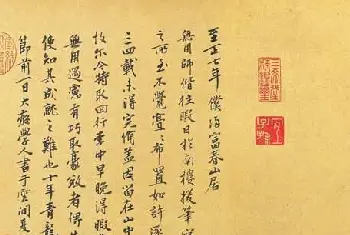 至正七年僕歸富春山居
無用師偕往暇日於南樓援筆寫
之所至不覺亹亹布置如許逐
三四載未得完備蓋因留在山中
故爾今特取回行李中早晚得暇
無用過慮有巧取豪敓者俾先
使知其成就之難也十年青龍
節前一日大癡學人書于雲間夏